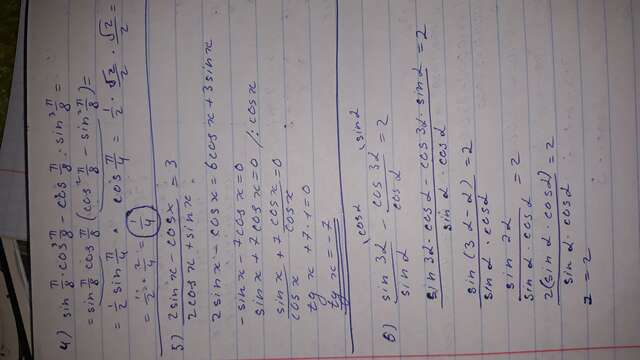 4) sin π/8 · cos³ π/8 - cos π/8 · sin³ π/8 =
= sin π/8 cos π/8 (cos² π/8 - sin² π/8) =
= 1/2 sin π/4 · cos π/4 = 1/2 · √2/2 · √2/2 =
= 1/2 · 2/4 = 1/4
5) (2 sin x - cos x)/(2 cos x + sin x) = 3
2 sin x - cos x = 6 cos x + 3 sin x
- sin x - 7 cos x = 0
sin x + 7 cos x = 0 /: cos x
sin x/cos x + 7 cos x/cos x = 0
tg x + 7 · 1 = 0
tg x = -7
6) sin 3α/sin α - cos 3α/cos α = 2
(sin 3α · cos α - cos 3α · sin α)/(sin α · cos α) = 2
sin (3α - α)/(sin α · cos α) = 2
sin 2α/(sin α · cos α) = 2
2(sin α · cos α)/(sin α · cos α) = 2
2 = 2